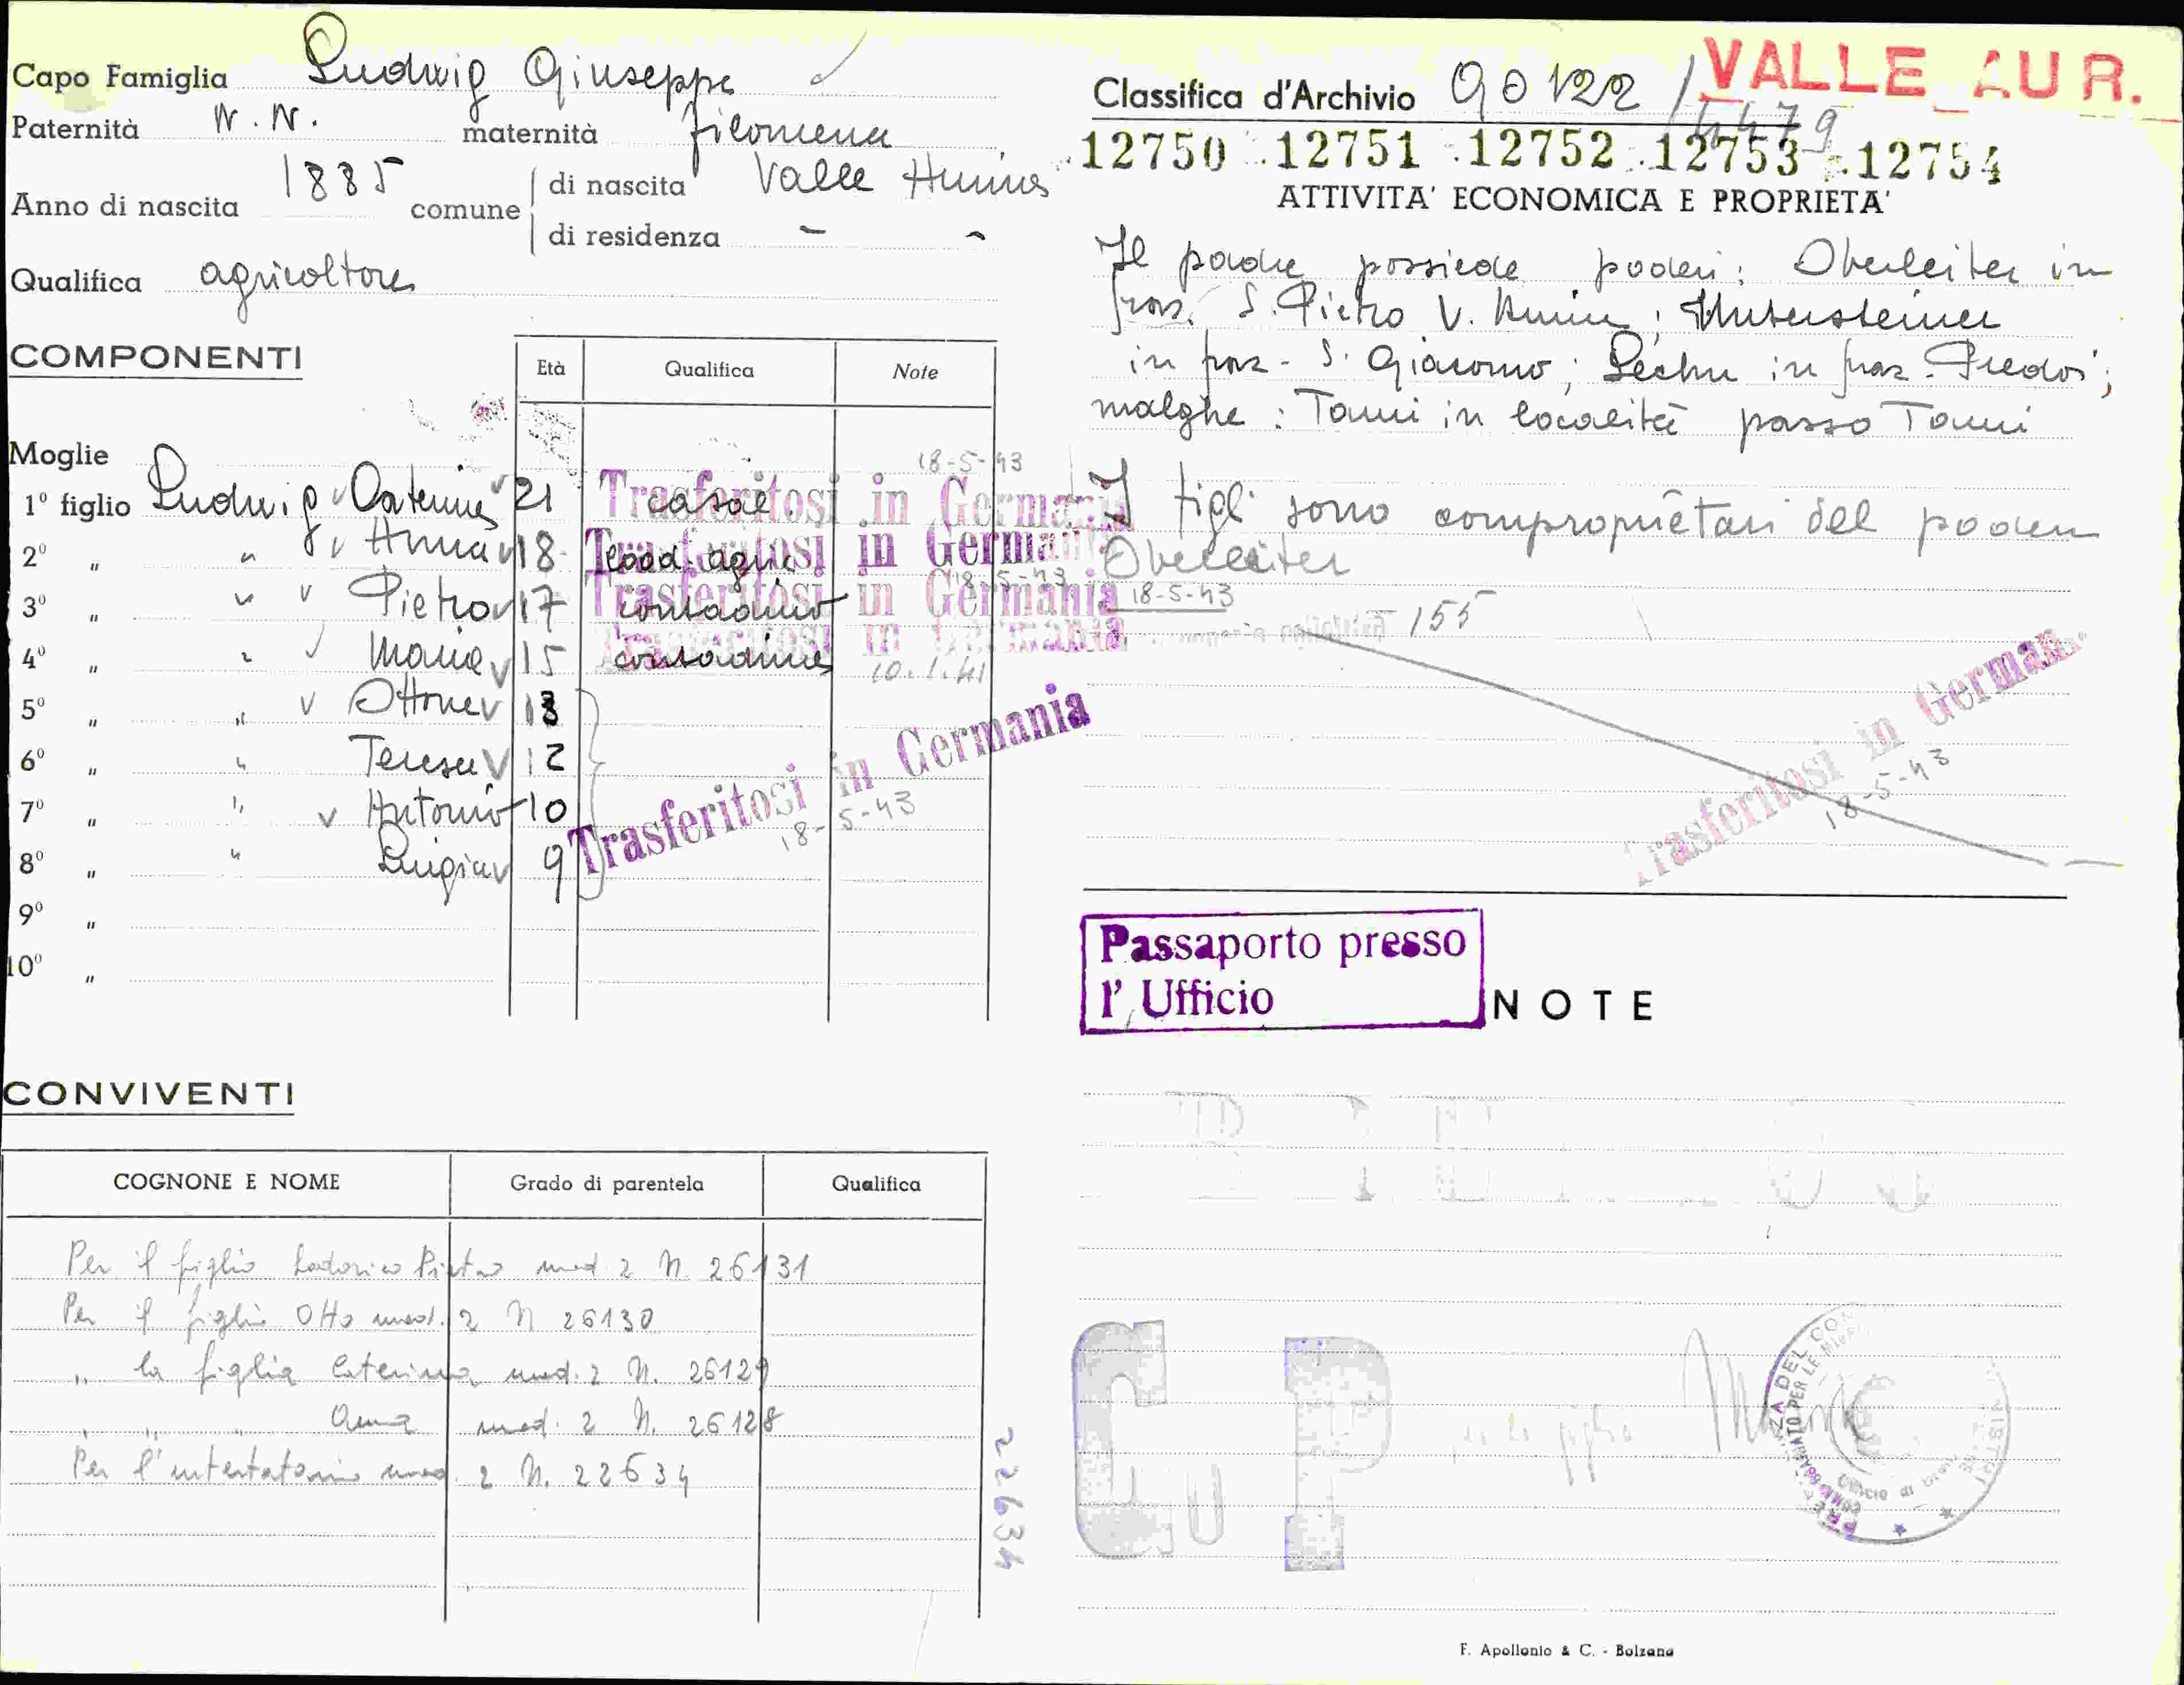 Capo Famiglia Ludwig Giuseppe
Paternità N. N. maternità Filomena
Anno di nascita 1885 comune di nascita Valle Aurina
di residenza - -
Qualifica agricoltore
COMPONENTI
Età Qualifica Note
Moglie
18-5-43
1º figlio Ludwig Caterina 21 casal. Trasferitosi in Germania
2º " " Anna 18 coad. agric. Trasferitosi in Germania
18-5-43
3º " " Pietro 17 contadino Trasferitosi in Germania 18-5-43
4º " " Maria 15 contadina Trasferitosi in Germania
10.1.41
5º " " Ottone 13
6º " " Teresa 12
7º " " Antonio 10
8º " " Luigia 9
Trasferitosi in Germania
18-5-43
9º "
10º "
CONVIVENTI
COGNONE E NOME Grado di parentela Qualifica
Per il figlio Lodovico Pietro mod. 2 N. 26131
Per il figlio Otto mod. 2 N 26130
" la figlia Caterina mod. 2 N. 26129
" " " Anna mod. 2 N. 26128
Per l'intestatario mod. 2 N. 22634
22634
VALLE AUR.
Classifica d'Archivio 90122 / 4479
12750 .12751 .12752 .12753 .12754
ATTIVITA' ECONOMICA E PROPRIETA'
Il padre possiede poderi: Oberleiter in
fraz. S. Pietro V. Aurin; Untersteiner
in fraz. S. Giacomo; Lechn in fraz. Predoi;
malghe: Tauri in località passo Tauri
I figli sono comproprietari del podere
Oberleiter
155
Trasferitosi in German
18-5-43
Passaporto presso
l' Ufficio
NOTE
per la figlia
F. Apollonio & C. - Bolzano